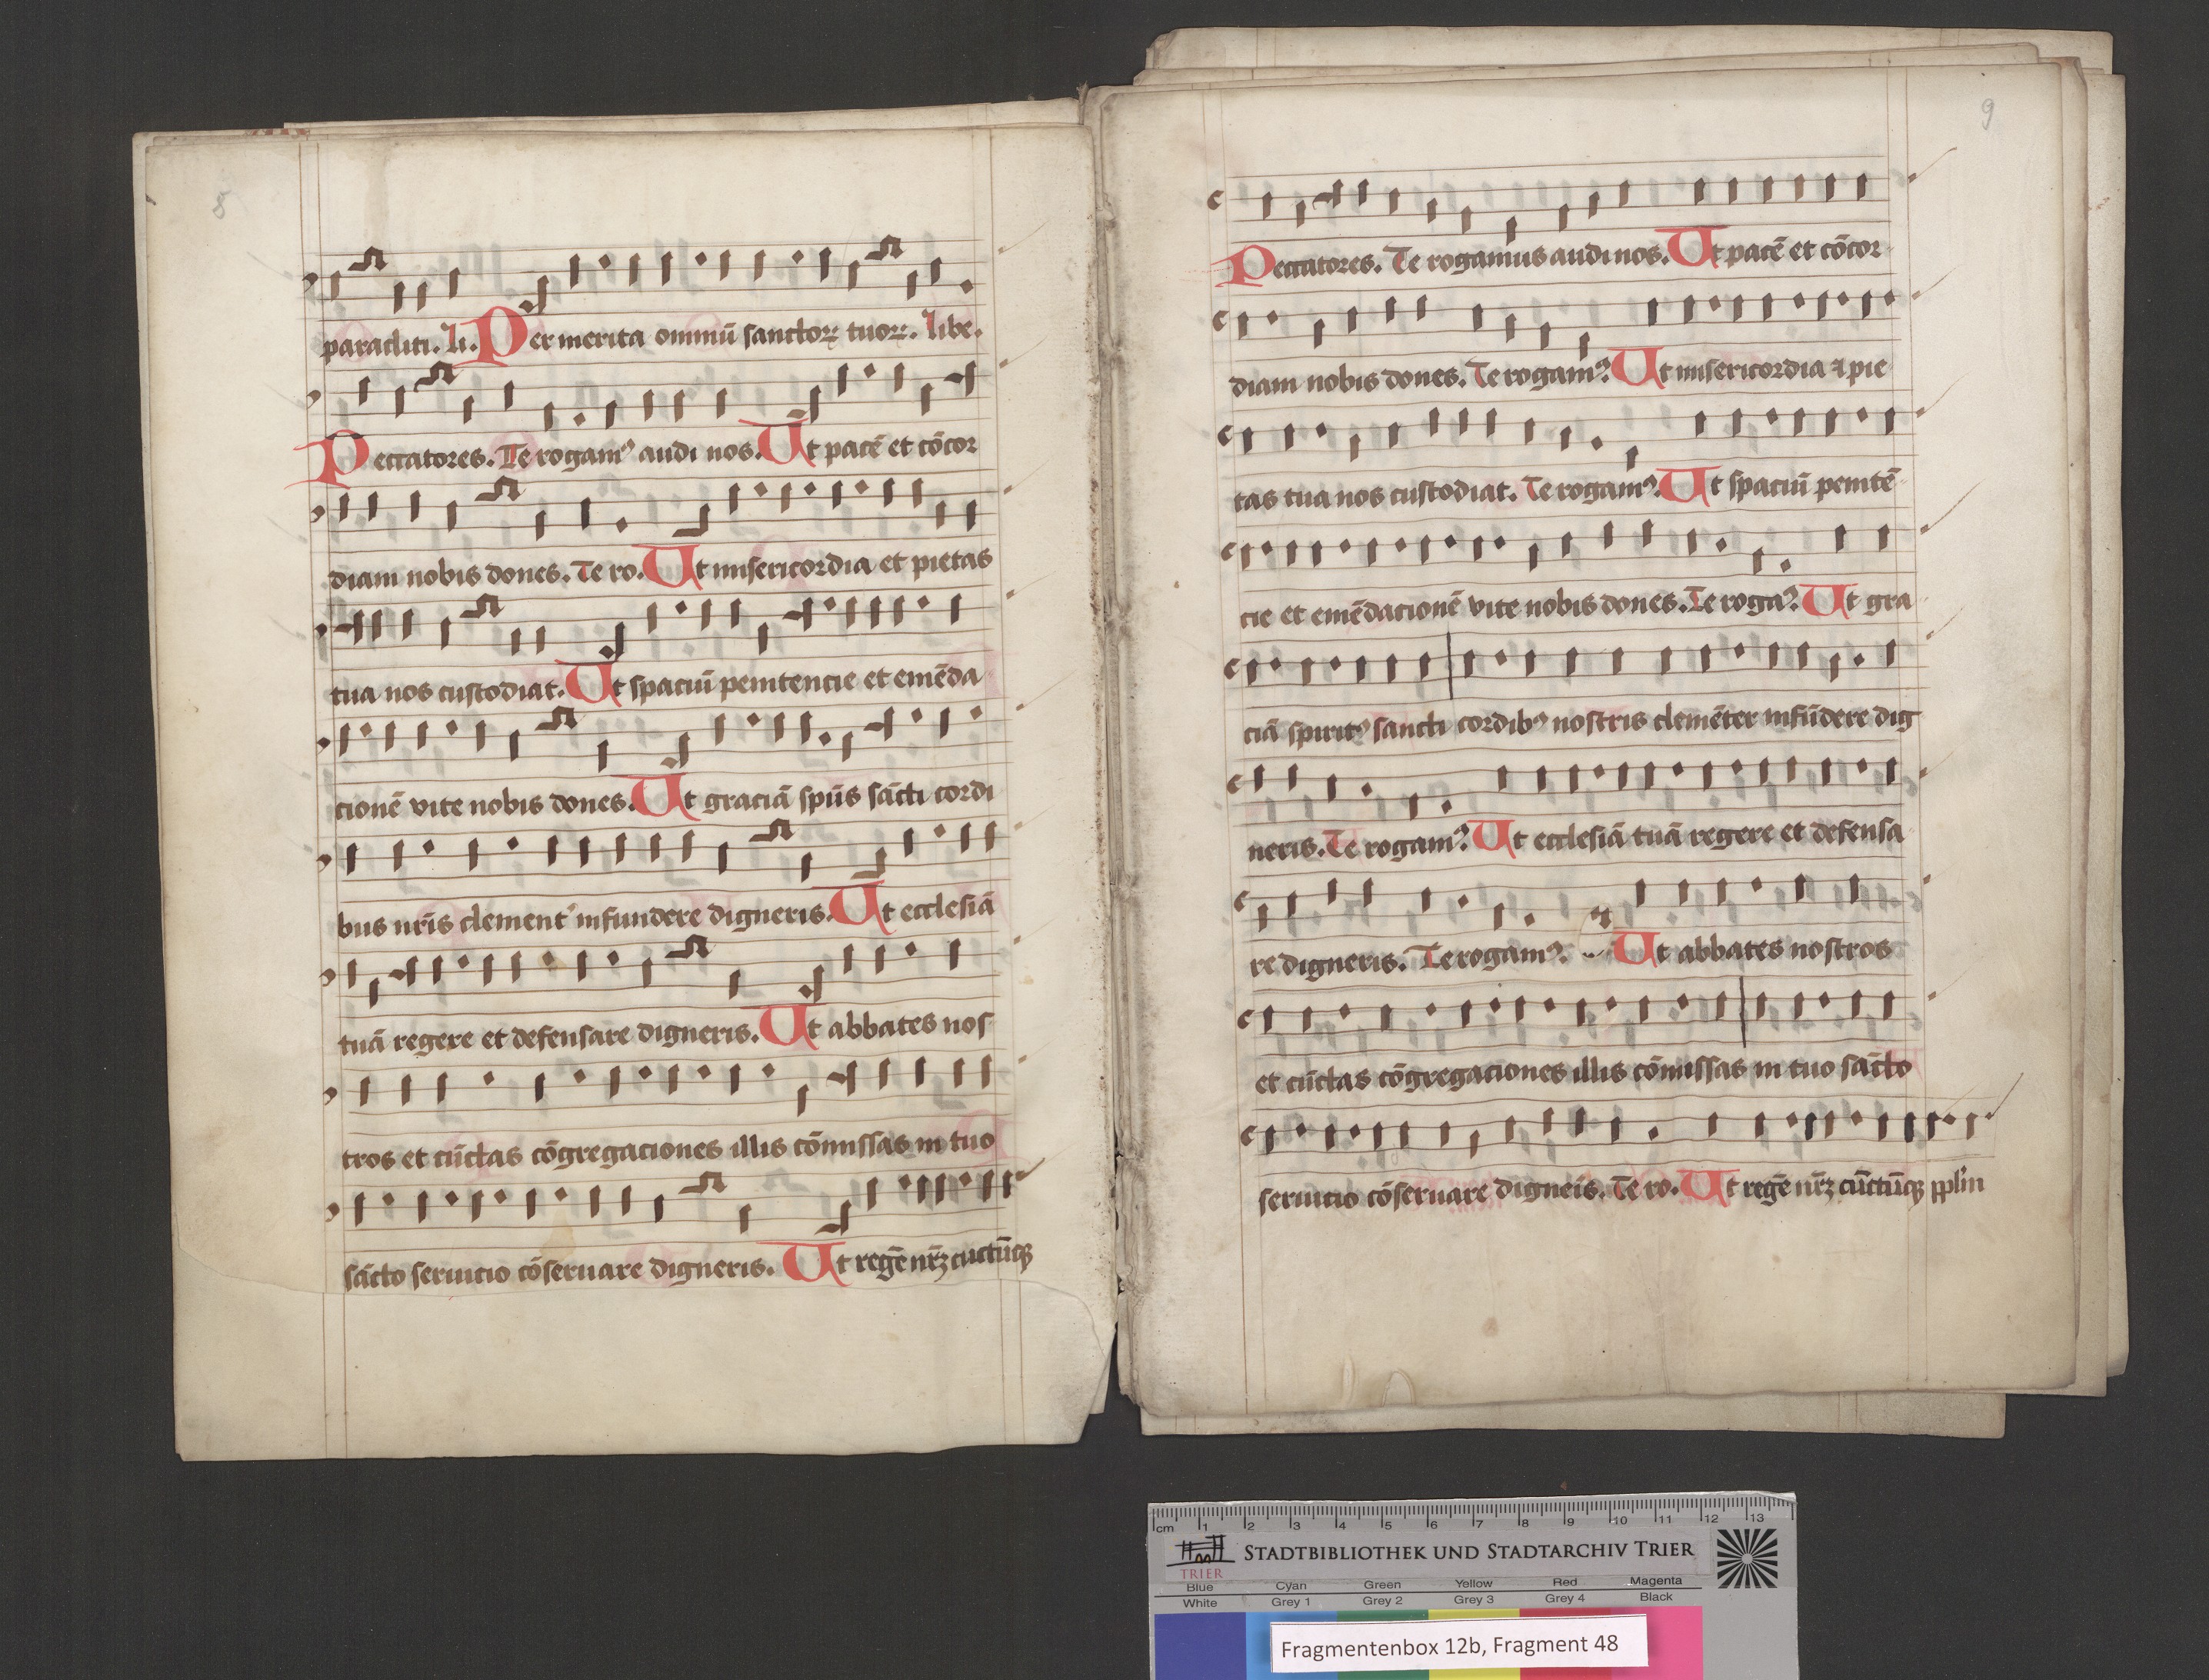 8
paracliti. li. Per merita omniū sanctoꝝ tuoꝝ. libe.
Peccatores. Te rogamꝰ audi nos. Ut pacē et cōcor
diam nobis dones. Te ro. Ut misericordia et pietas
tua nos custodiat. Ut spaciū penitencie et emēda
cionē vite nobis dones. Ut graciā spūs sācti cordi
bus nr̄is clement᾽ infundere digneris. Ut ecclesiā
tuā regere et defensare digneris. Ut abbates nos
tros et cūctas cōgregaciones illis cōmissas in tuo
sācto seruicio cōseruare digneris. Ut regē nr̄ꝫ cūctūqꝫ
9
Peccatores. Te rogamus audi nos. Ut pacē et cōcor
diam nobis dones. Te rogamꝰ. Ut misericordia ⁊ pie
tas tua nos custodiat. Te rogamꝰ. Ut spaciū penitē
cie et emēdacionē vite nobis dones. Te rogaꝰ. Ut gra
ciā spiritꝰ sancti cordibꝰ nostris clemēter infūdere dig
neris. Te rogamꝰ. Ut ecclesiā tuā regere et defensa
re digneris. Te rogamꝰ. Ut abbates nostros
et cūctas cōgregaciones illis cōmissas in tuo sācto
seruicio cōseruare digneis. Te ro. Ut regē nr̄ꝫ cūctūqꝫ pplm
cm 1 2 3 4 5 6 7 8 9 10 11 12 13
STADTBIBLIOTHEK UND STADTARCHIV TRIER
TRIER
Blue Cyan Green Yellow Red Magenta
White Grey 1 Grey 2 Grey 3 Grey 4 Black
Fragmentenbox 12b, Fragment 48